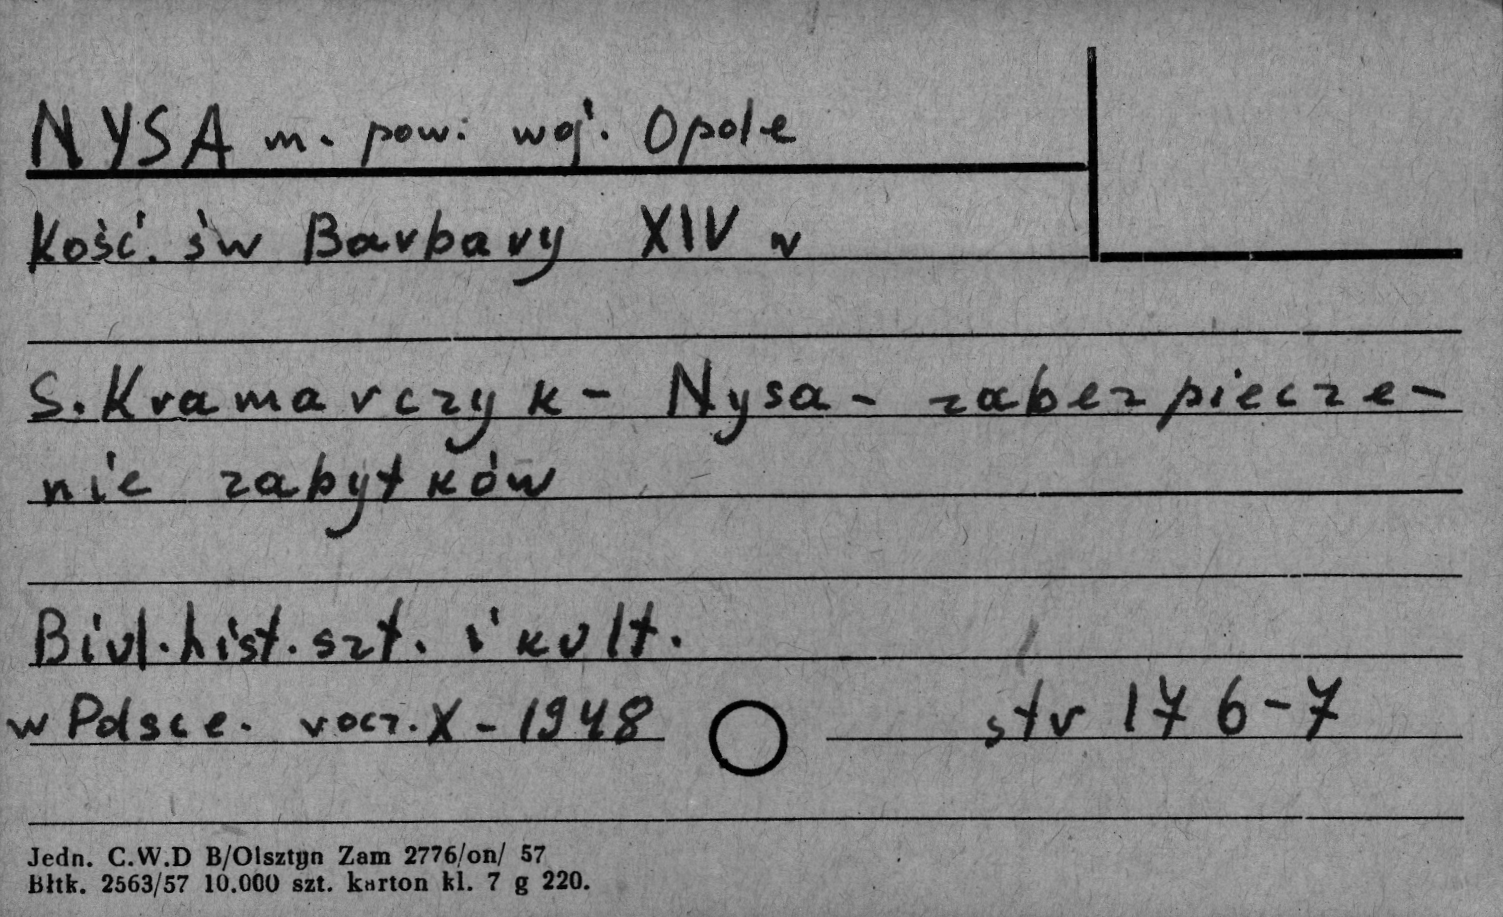 NYSA m. pow. woj. Opole
Kość. św Barbary XIV w
S. Kramarczyk - Nysa - zabezpiecze-
nie zabytków
Biul. hist. szt. i kult.
w Polsce. rocz. X - 1948 str 176-7
Jedn. C.W.D B/Olsztyn Zam 2776/on/ 57
Błtk. 2563/57 10.000 szt. karton kl. 7 g 220.